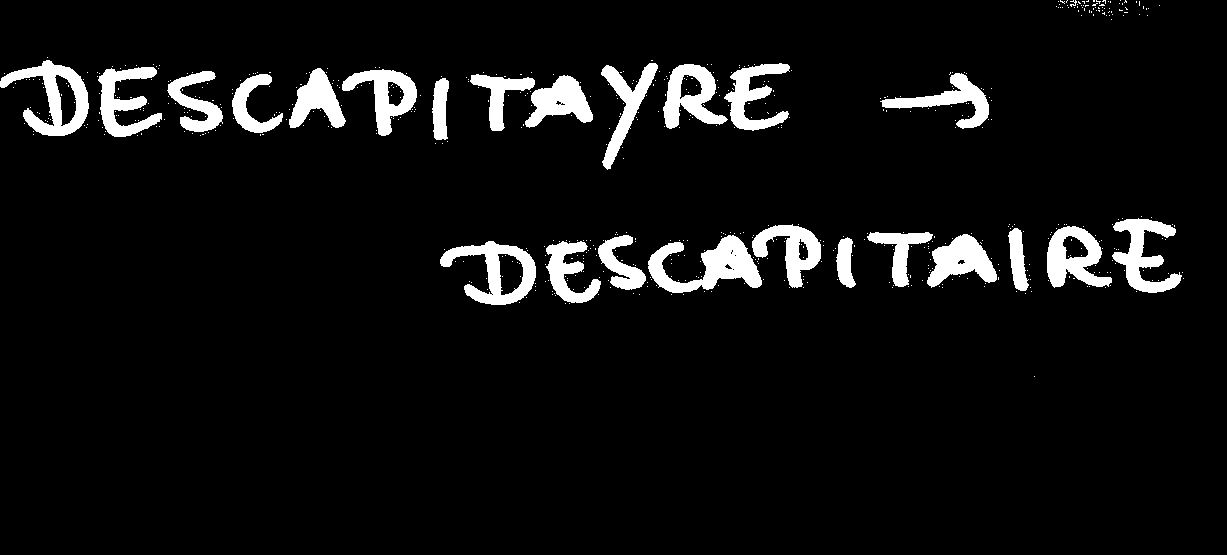 DESCAPITAYRE →
DESCAPITAIRE